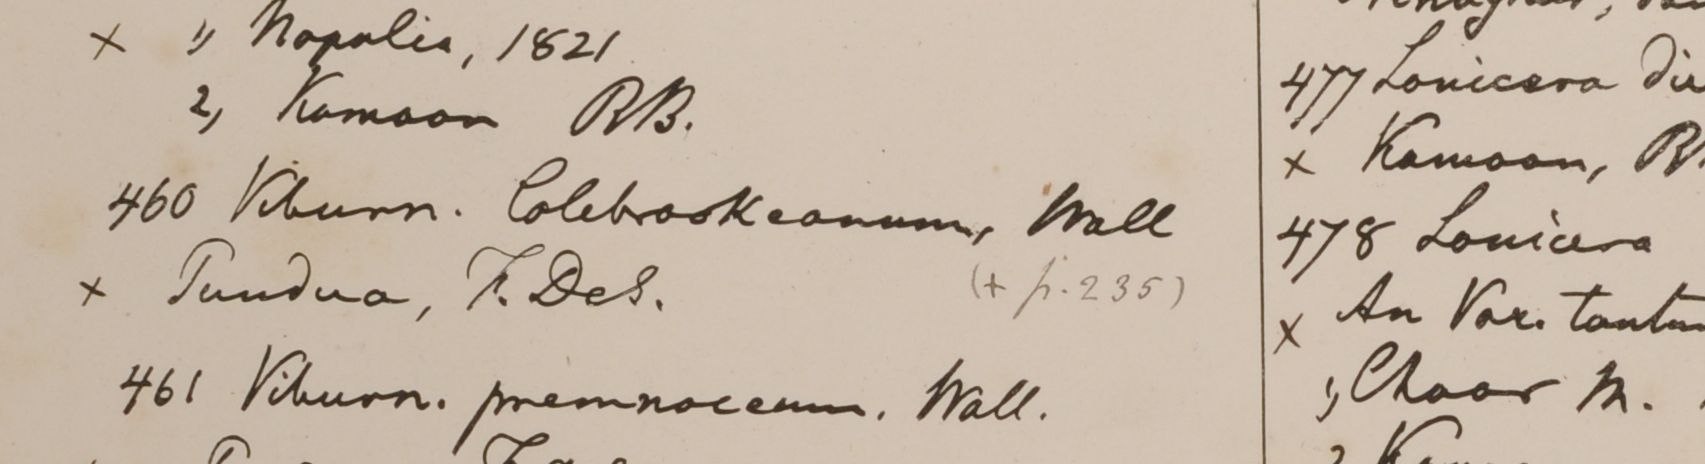 × 1, Napalia, 1821
2, Kamaon RB.
460 Viburn. Colebrookeanum, Wall
× Pundua, F. DeS.
(+ p. 235)
461 Viburn. premnaceum. Wall.
477 Lonicera
× Kamaon,
478 Lonicera
× An Var.
1, Chaor M.
2